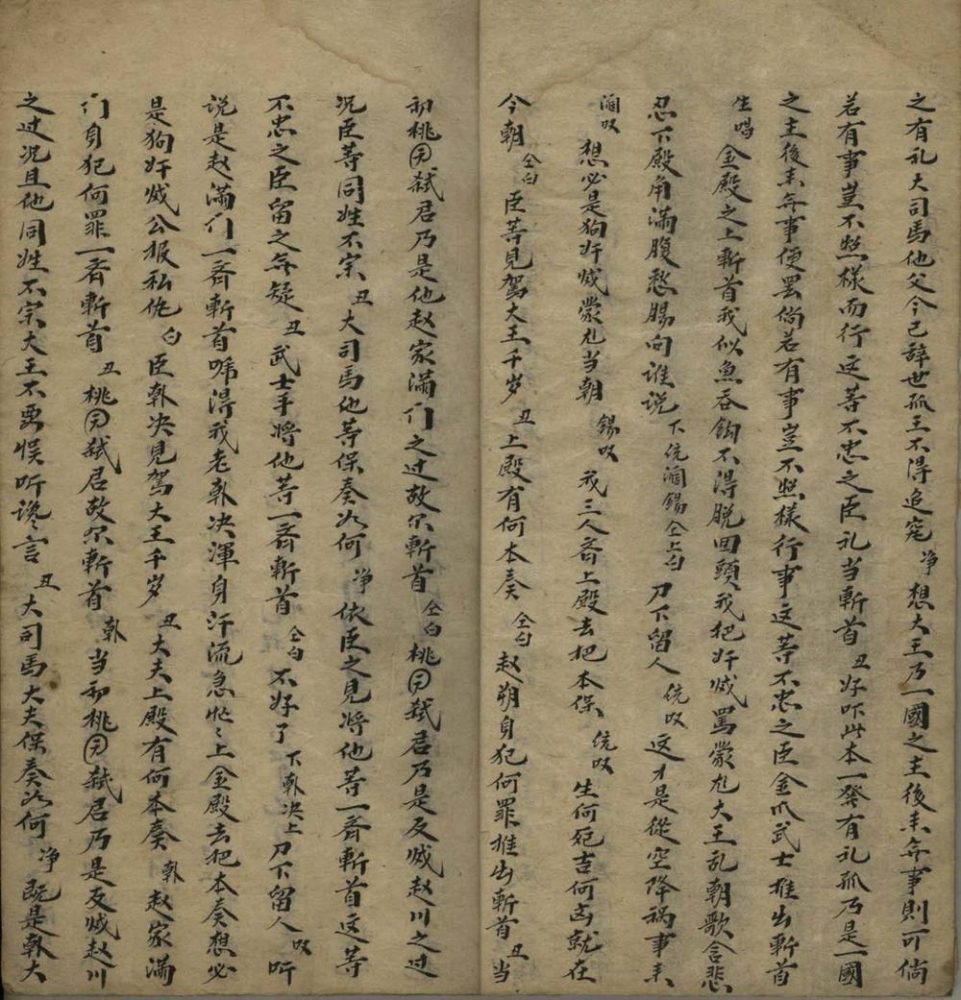 之有礼大司馬他父今已辞世孤王不得追究 净 想大王乃一國之主後来無事則可倘
若有事豈不照樣而行这苐不忠之臣礼当斬首 丑 好吓此本一發有礼孤乃是一國
之主後来無事便罢倘若有事豈不照樣行事这苐不忠之臣金爪武士推出斬首
生唱 金殿之上斬首我似魚吞鈎不得脫回頭我把奸贼罵蒙尨大王乱朝歌含悲
忍下殿角滿腹愁腸向誰説 下 伉涃錫仝上白 刀下留人 伉叹 这才是從空降祸事来
涃叹 想必是狗奸贼蒙尨当朝 錫叹 我三人斉上殿去把本保 伉叹 生何死吉何凶就在
今朝 仝白 臣苐見駕大王千岁 丑 上殿有何本奏 仝白 赵朔身犯何罪推出斬首 丑 当
初桃园弑君乃是他赵家滿门之过故尔斬首 仝白 桃园弑君乃是反贼赵川之过
况臣苐同姓不宗 丑 大司馬他苐保奏如何 净 依臣之見将他苐一斉斬首这苐
不忠之臣留之無疑 丑 武士手将他苐一斉斬首 仝白 不好了 下 軌决上 刀下留人 叹 听
说是赵滿门一斉斬首唬得我老軌决渾身汗流急忙〻上金殿去把本奏想必
是狗奸贼公报私仇 白 臣軌决見駕大王千岁 丑 大夫上殿有何本奏 軌 赵家滿
门身犯何罪一斉斬首 丑 桃园弑君故尔斬首 軌 当初桃园弑君乃是反贼赵川
之过况且他同姓不宗大王不要悞听谗言 丑 大司馬大夫保奏如何 净 既是軌大